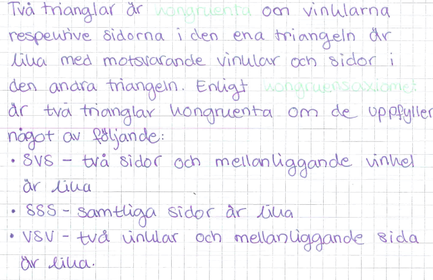 Två trianglar är kongruenta om vinklarna
respektive sidorna i den ena triangeln är
lika med motsvarande vinklar och sidor i
den andra triangeln. Enligt kongruensaxiomet
är två trianglar kongruenta om de uppfyller
något av följande:
• SVS – två sidor och mellanliggande vinkel
är lika
• SSS – samtliga sidor är lika
• VSV – två vinklar och mellanliggande sida
är lika.